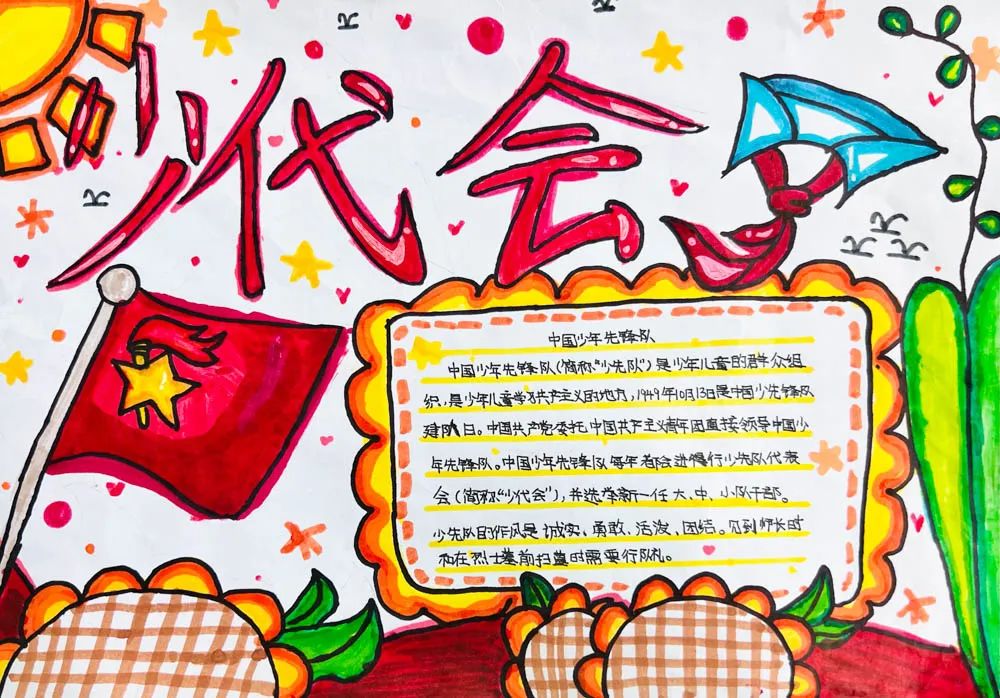 少代会
中国少年先锋队
中国少年先锋队(简称“少先队”)是少年儿童的群众组
织,是少年儿童学习共产主义的地方,1949年10月13日是中国少先锋队
建队日。中国共产党委托中国共产主义青年团直接领导中国少
年先锋队。中国少年先锋队每年都会进行少先队代表
会(简称“少代会”),并选举新一任大、中、小队干部。
少先队的作风是诚实、勇敢、活泼、团结。见到师长时
和在烈士墓前扫墓时需要行队礼。